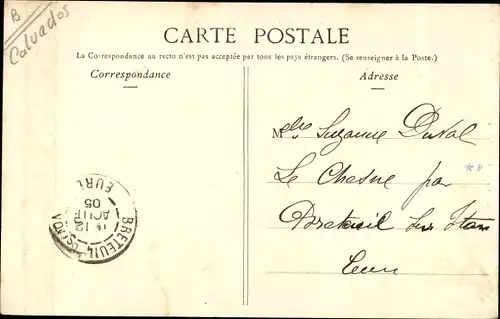 B
Calvados
CARTE POSTALE
La Correspondance au recto n'est pas acceptée par tous les pays étrangers. (Se renseigner à la Poste.)
Correspondance
Adresse
Mdlle Suzanne Duval
Le Chesne par
Breteuil sur Iton
Eure
BRETEUIL
12
AOUT
05
EURE